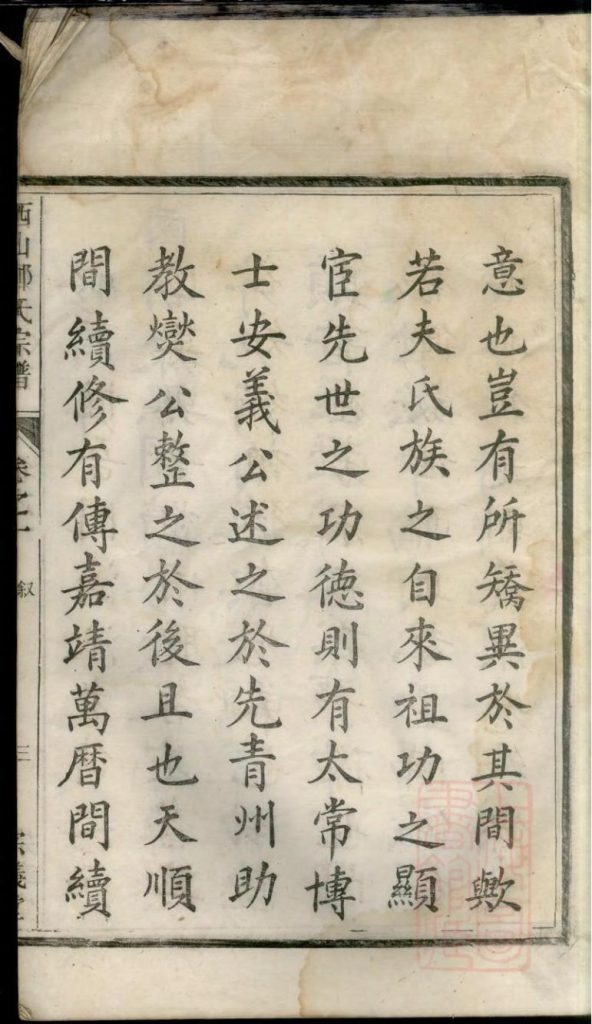 意也豈有所矯異於其間歟
若夫氏族之自來祖功之顯
宦先世之功德則有太常博
士安義公述之於先青州助
教爕公整之於後且也天順
間續修有傳嘉靖萬曆間續
宗譜
卷之一
叙
三